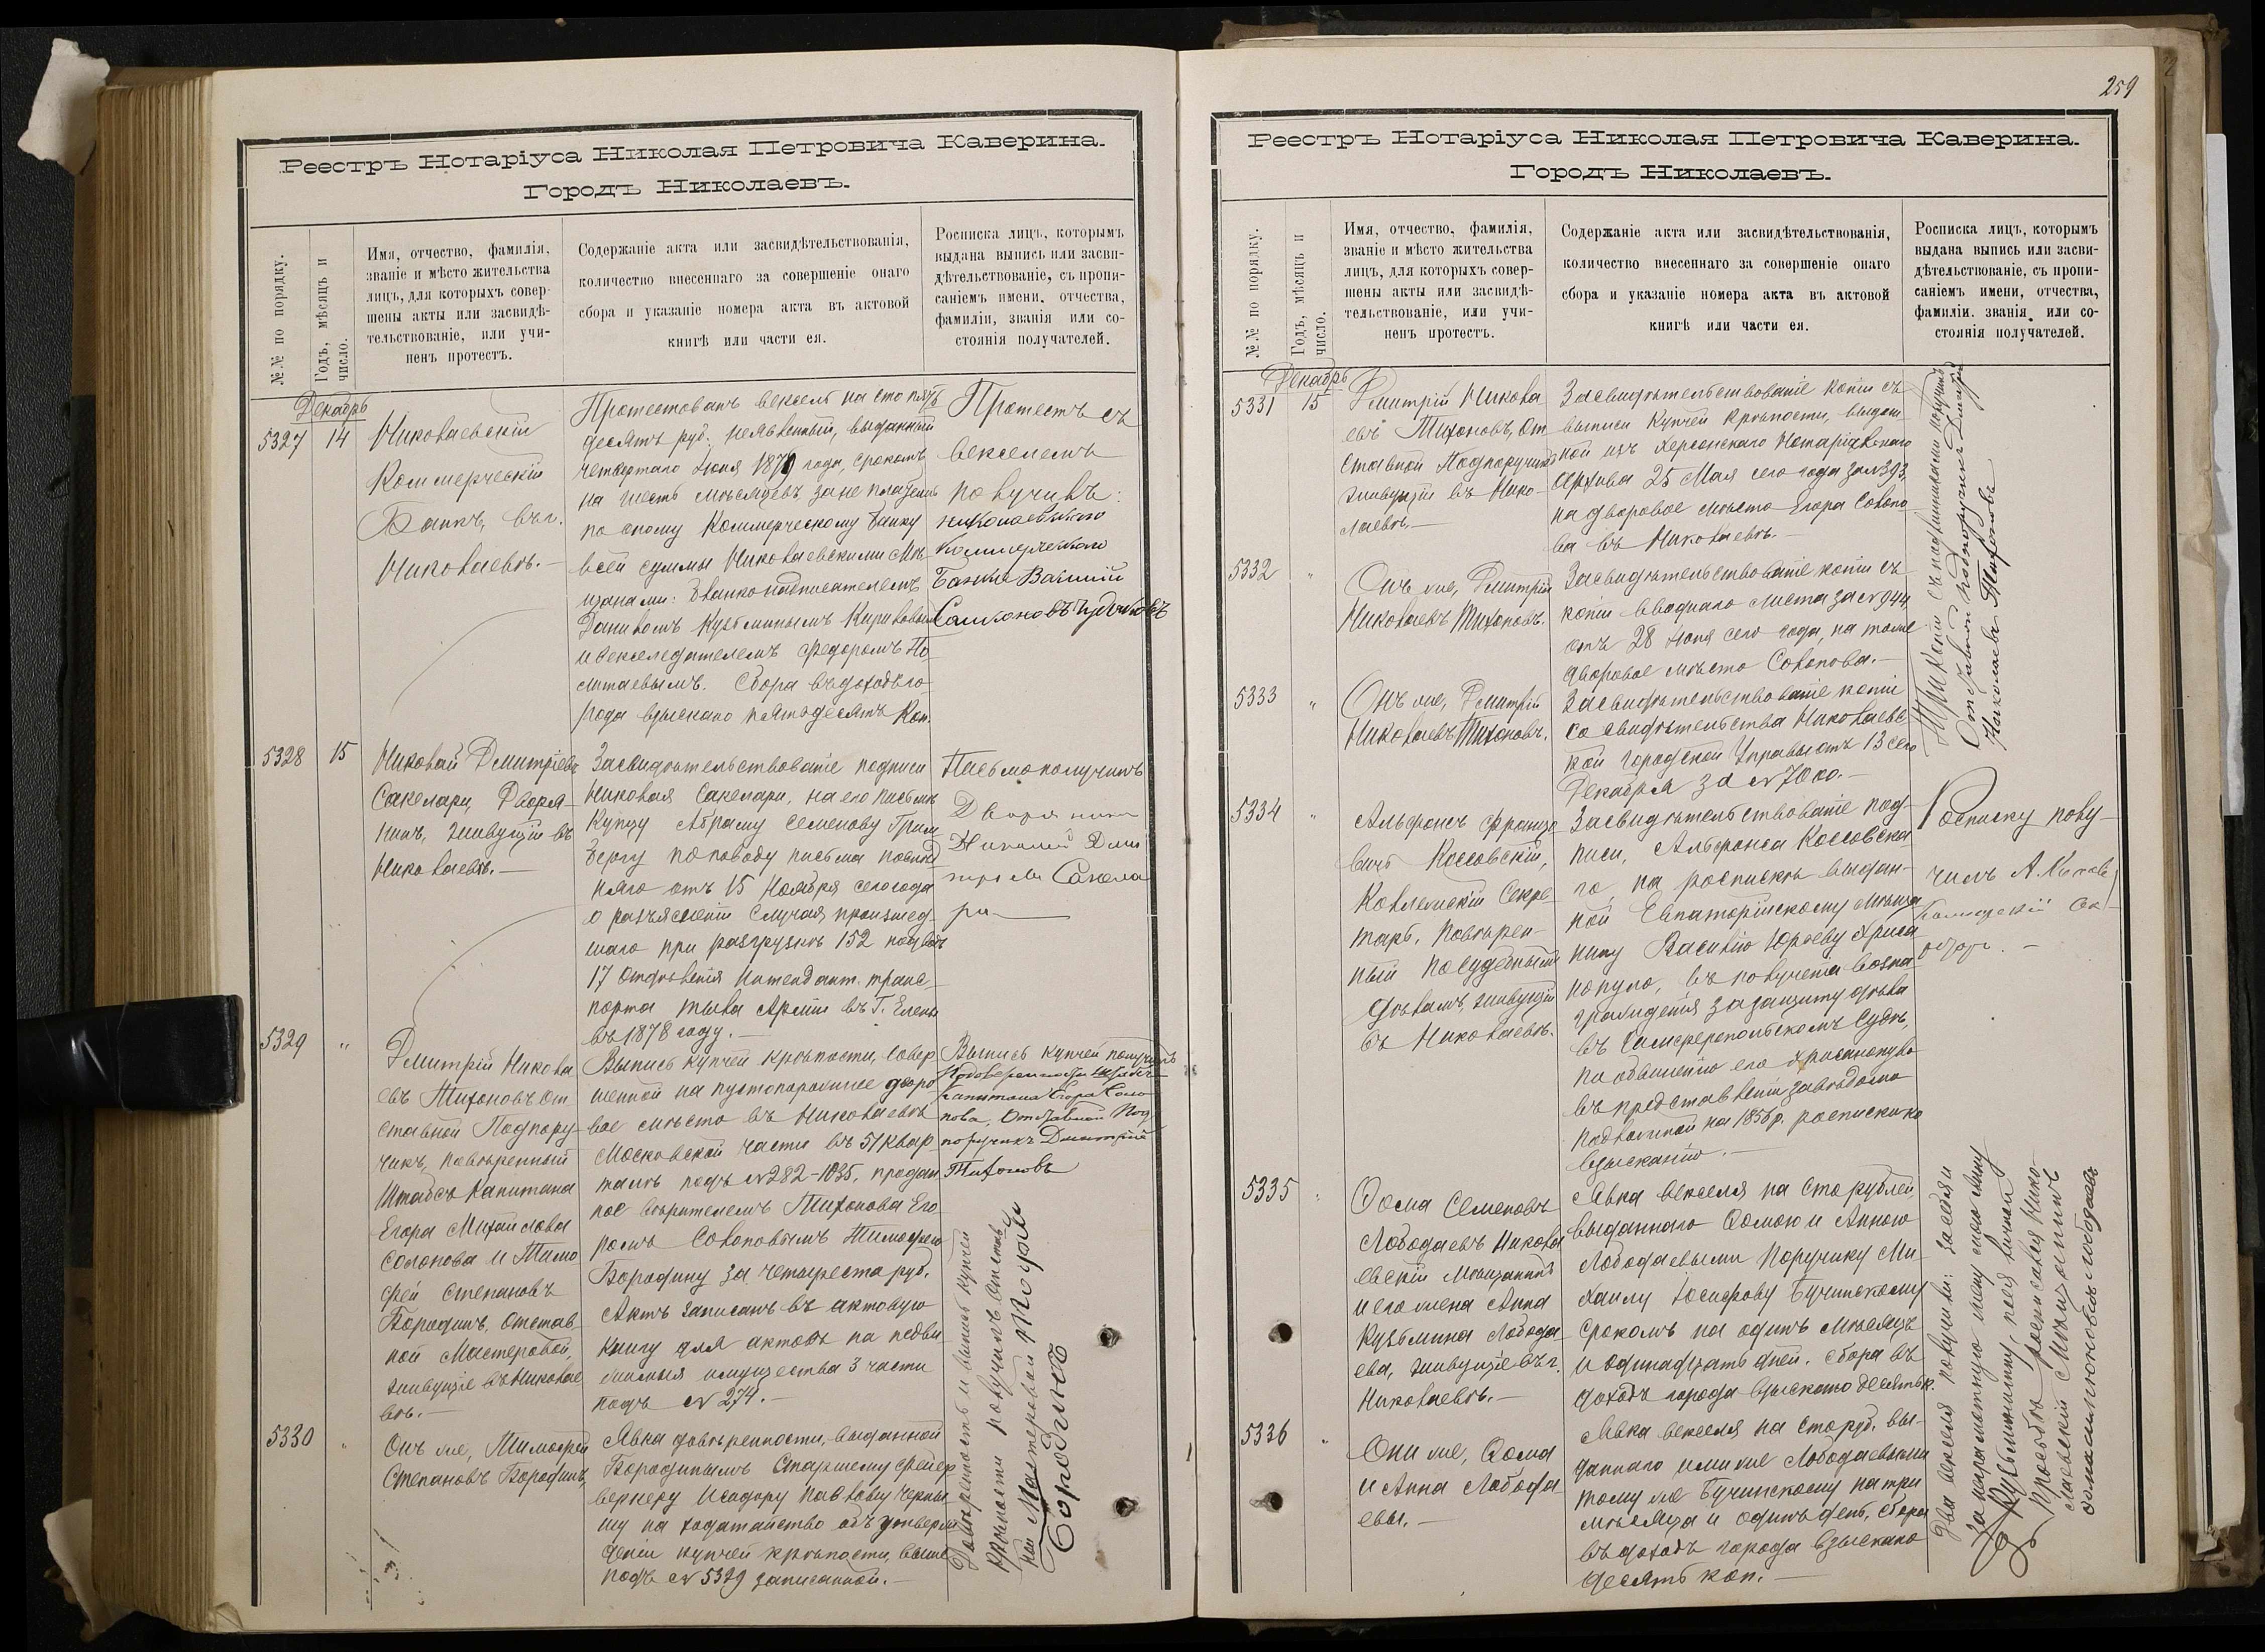 259
Реестръ Нотаріуса Николая Петровича Каверина.
Городъ Николаевъ.
№№ по порядку.
Годъ, мѣсяцъ и
число.
Имя, отчество, фамилія,
званіе и мѣсто жительства
лицъ, для которыхъ совер-
шены акты или засвидѣ-
тельствованіе, или учи-
ненъ протестъ.
Содержаніе акта или засвидѣтельствованія,
количество внесеннаго за совершеніе онаго
сбора и указаніе номера акта въ актовой
книгѣ или части ея.
Росписка лицъ, которымъ
выдана выпись или засви-
дѣтельствованіе, съ пропи-
саніемъ имени, отчества,
фамиліи, званія или со-
стоянія получателей.
Декабрь
5327
14
Николаевскій
Коммерческій
Банкъ, въ г.
Николаевѣ.-
Протестованъ вексель на сто пять
десятъ руб. неявленный, выданный
четвертаго Іюня 1879 года, срокомъ
на шесть мѣсяцевъ за не платежъ
по оному Коммерческому Банку
всей суммы Николаевскими Мѣ-
щанами: бланконадписателемъ
Даниломъ Кузьминымъ Кириловымъ
и векселедателемъ Федоромъ По-
лтаевымъ. Сбора въ доходъ го-
рода взыскано пятьдесятъ коп.
Протестъ съ
векселемъ
получилъ:
Николаевскаго
Коммерческаго
Банка
5328
15
Николай Дмитріевъ
Сакелари, Дворя-
нинъ, живущій въ
Николаевѣ.-
Засвидѣтельствованіе подписи
Николая Сакелари, на его письмѣ
купцу Абраму Семенову Грим
бергу по поводу письма послѣд
няго отъ 15 Ноября сего года
о разъясненіи случая произшед-
шаго при разгрузкѣ 152 подводъ
17 отдѣленія Интендант. транс-
порта тыла Арміи въ Г. Елены
въ 1878 году.-
Письмо получилъ
Дворянинъ
Николай Дми
тріевъ Сакела
ри
5329
"
Дмитрій Никола
евъ Тихоновъ От
ставной Подпору-
чикъ, повѣренный
Штабсъ Капитана
Егора Михайлова
Солонова и Тимо
фей Степановъ
Бородинъ, отстав
ной Мастеровой,
живущіе въ Николае
вѣ.-
Выпись купчей крѣпости, совер
шенной на пустопорожнее дворо
вое мѣсто въ Николаевѣ
Московской части въ 51 квар-
талѣ подъ № 282-1035, продан
ное вѣрителемъ Тихонова Его
ромъ Солоновымъ Тимофею
Бородину за четыреста руб.
Актъ записанъ въ актовую
книгу для актовъ на недви
жимыя имущества 3 части
подъ № 274.-
Выпись купчей получилъ
по доверенности Штабсъ
капитана Егора Соло
нова, Отставной Под
поручикъ Дмитрій
Тихоновъ
5330
"
Онъ же, Тимофей
Степановъ Бородинъ,
Явка довѣренности, выданной
Бородинымъ Старшему фейер
веркеру Исидору Павлову Черны
шу на ходатайство объ утверж
деніи купчей крѣпости, выше
подъ № 5329 записанной.-
Довѣренность и выпись купчей
крѣпости получилъ Отстав
ной Мастеровой Тимофей
Бородинъ
Реестръ Нотаріуса Николая Петровича Каверина.
Городъ Николаевъ.
№№ по порядку.
Годъ, мѣсяцъ и
число.
Имя, отчество, фамилія,
званіе и мѣсто жительства
лицъ, для которыхъ совер-
шены акты или засвидѣ-
тельствованіе, или учи-
ненъ протестъ.
Содержаніе акта или засвидѣтельствованія,
количество внесеннаго за совершеніе онаго
сбора и указаніе номера акта въ актовой
книгѣ или части ея.
Росписка лицъ, которымъ
выдана выпись или засви-
дѣтельствованіе, съ пропи-
саніемъ имени, отчества,
фамиліи, званія или со-
стоянія получателей.
Декабрь
5331
15
Дмитрій Никола
евъ Тихоновъ, От
ставной Подпоручикъ
живущій въ Нико-
лаевѣ.-
Засвидѣтельствованіе копіи съ
выписи купчей крѣпости, выдан
ной изъ Херсонскаго Нотаріальнаго
Архива 25 Мая сего года за № 393,
на дворовое мѣсто Егора Солоно
ва въ Николаевѣ.-
5332
"
Онъ же, Дмитрій
Николаевъ Тихоновъ.
Засвидѣтельствованіе копіи съ
копіи вводнаго листа за № 944
отъ 28 Іюня сего года, на тоже
дворовое мѣсто Солонова.-
5333
"
Онъ же, Дмитрій
Николаевъ Тихоновъ.
Засвидѣтельствованіе копіи
со свидѣтельства Николаевс
кой Городской Управы отъ 13 сего
Декабря за № 7000.-
Три копіи съ подлинниками получилъ
Отставной Подпоручикъ Дмитрій
Николаевъ Тихоновъ
5334
"
Альфонсъ Францо
вичъ Коссовскій,
Коллежскій Секре-
тарь, повѣрен-
ный по судебнымъ
дѣламъ, живущій
въ Николаевѣ.
Засвидѣтельствованіе под-
писи, Альфонса Коссовска
го, на роспискѣ выдан-
ной Евпаторійскому мѣща
нину Василію Юрьеву Хриса
нопуло, въ полученіи возна-
гражденія за защиту дѣла
въ Симферопольскомъ Судѣ,
по обвиненію его Хрисанопуло
въ представленіи завѣдомо
подложной на 1856 р. росписки ко
взысканію.-
Росписку полу-
чилъ
5335
"
Ѳома Семеновъ
Лободаевъ Никола
евскій Мѣщанинъ
и его жена Анна
Кузьмина Лобода
ева, живущіе въ г.
Николаевѣ.-
Явка векселя на сто рублей,
выданнаго Ѳомою и Анною
Лободаевыми Поручику Ми-
хаилу Іосифову Бучинскому
срокомъ на одинъ мѣсяцъ
и одинадцать дней. Сбора въ
доходъ города взыскано десять к.
5336
"
Они же, Ѳома
и Анна Лобода
евы.-
Явка векселя на сто руб. вы-
даннаго ими же Лободаевыми
тому же Бучинскому на три
мѣсяца и одинъ день. Сбора
въ доходъ города взыскано
десять коп.-
Два векселя получили: за себя и
за неграмотную жену свою Анну
Кузьминишну по ея личной
просьбѣ росписался Нико-
лаевскій Мѣщанинъ